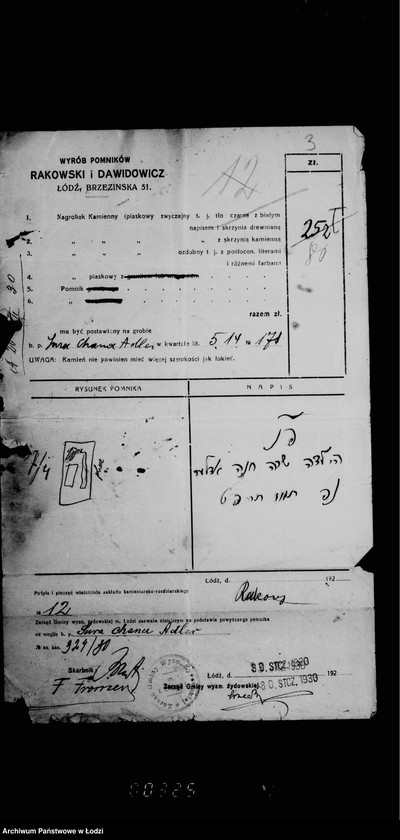 3
WYRÓB POMNIKÓW
RAKOWSKI i DAWIDOWICZ
ŁÓDŹ, BRZEZINSKA 51.
12
ZŁ.
1. Nagrobek Kamienny (piaskowy zwyczajny t. j. tło czarne z białym
napisem i skrzynia drewnianą
25 zł
2. „ „ „ „ z skrzynią kamienną
3. „ „ „ ozdobny t. j. z pozłocon. literami
i różnemi farbami
80
4. „ piaskowy z
5. Pomnik
6. „
razem zł.
ma być postawiony na grobie
b. p. Sura Chana Adler w kwartele lit. 5. 14 № 178
UWAGA: Kamień nie powinien mieć więcej szerokości jak łokieć.
RYSUNEK POMNIKA
NAPIS
פ״נ
הילדה שרה חנה אדלער
נפ תמוז תרפט
Łódź, d. 192
Podpis i pieczęć właściciela zakładu kamieniarsko-rzeźbiarskiego
№ 12
Zarząd Gminy wyzn. żydowskiej m. Łodzi zezwala niniejszym na podstawie powyższego pomnika
na mogile b. p. Sura Chana Adler
№ as. kas. 929/80
Skarbnik
Łódź, d. 192
30. STCZ. 1930
Zarząd Gminy wyzn. żydowskiej
30. STCZ. 1930
00325
Archiwum Państwowe w Łodzi